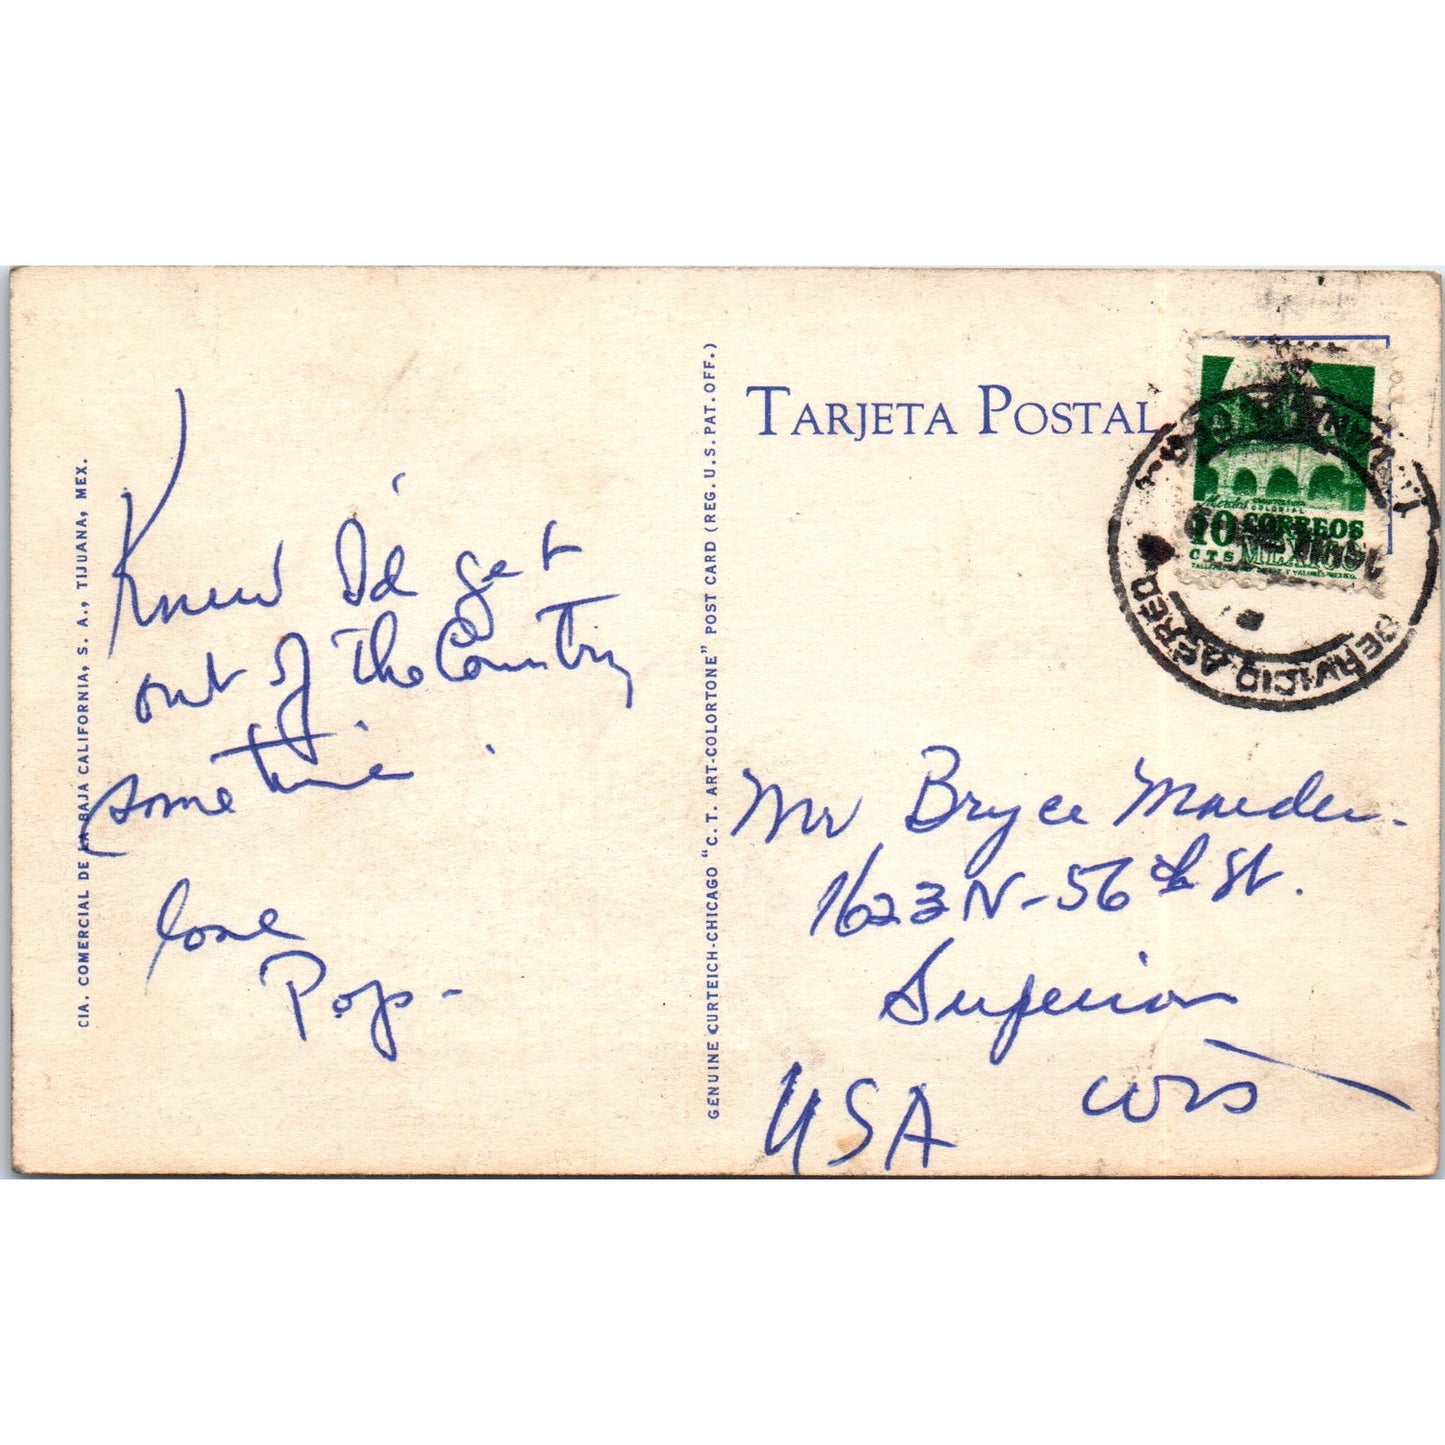 CIA. COMERCIAL DE LA BAJA CALIFORNIA, S. A., TIJUANA, MEX.
Knew I'd get
out of the Country
sometime.
love
Pops-
GENUINE CURTEICH-CHICAGO "C. T. ART-COLORTONE" POST CARD (REG. U. S. PAT. OFF.)
TARJETA POSTAL
10 CORREOS
CTS MEXICO
COLONIAL
SERVICIO AEREO
Mr Bryce
1623 N-56th St.
Superior
Wis
USA